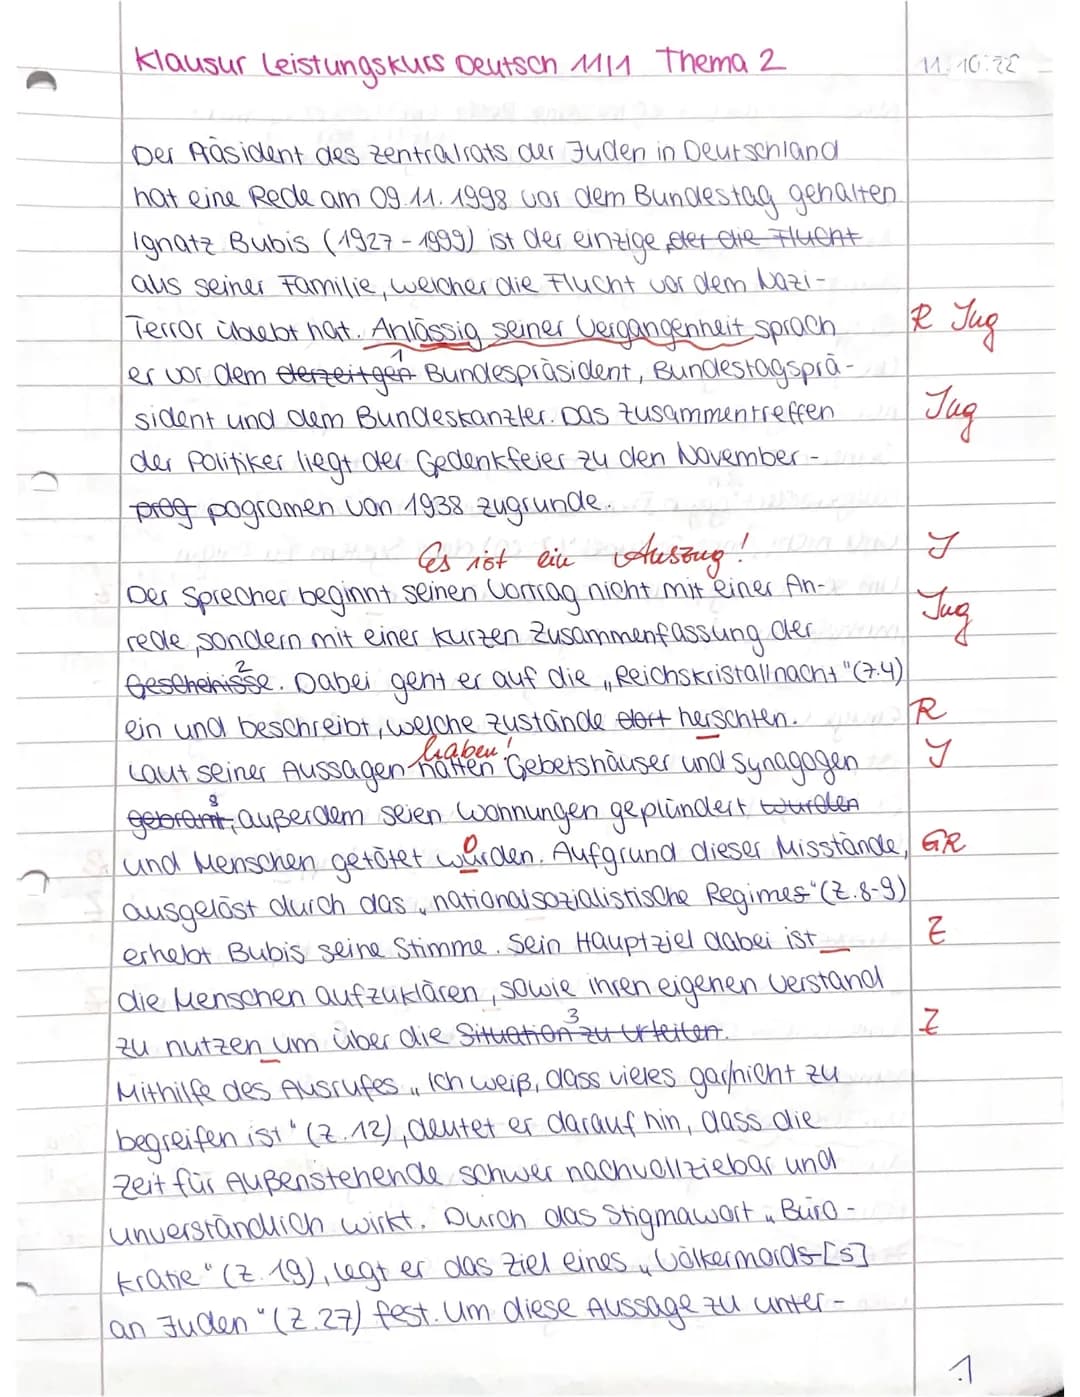 Klausur Leistungskurs Deutsch 11/1 Thema 2 11.10.22
Der Präsident des Zentralrats der Juden in Deutschland
hat eine Rede am 09.11.1998 vor dem Bundestag gehalten.
Ignatz Bubis (1927-1999) ist der einzige, der die Flucht
aus seiner Familie, welcher die Flucht vor dem Nazi-
Terror überlebt hat. Anlässig seiner Vergangenheit sprach R Jug
er vor dem derzeitgen 1 Bundespräsident, Bundestagsprä-
sident und dem Bundeskanzler. Das Zusammentreffen Jug
der Politiker liegt der Gedenkfeier zu den November-
prog pogromen von 1938 zugrunde.
Es ist ein Auszug! J
Der Sprecher beginnt seinen Vortrag nicht mit einer An-
rede, sondern mit einer kurzen Zusammenfassung der Jug
Gescheinisse 2. Dabei geht er auf die „Reichskristallnacht" (Z.4)
ein und beschreibt, welche Zustände dort herschten. R
haben!
Laut seiner Aussagen hätten Gebetshäuser und Synagogen J
gebrannt 8, außerdem seien Wohnungen geplündert wurden
und Menschen getötet würden. o Aufgrund dieser Misstände, GR
ausgelöst durch das „nationalsozialistische Regimes" (Z.8-9)
erhebt Bubis seine Stimme. Sein Hauptziel dabei ist Z
die Menschen aufzuklären, sowie ihren eigenen Verstand
zu nutzen um über die Situation 3 zu urteilen. Z
Mithilfe des Ausrufes „Ich weiß, dass vieles gar/nicht zu
begreifen ist" (Z.12), deutet er darauf hin, dass die
Zeit für Außenstehende schwer nachvollziebar und
unverständlich wirkt. Durch das Stigmawort „Büro-
kratie" (Z.19), legt er das Ziel eines „Völkermords [s]
an Juden" (Z.27) fest. Um diese Aussage zu unter-
1